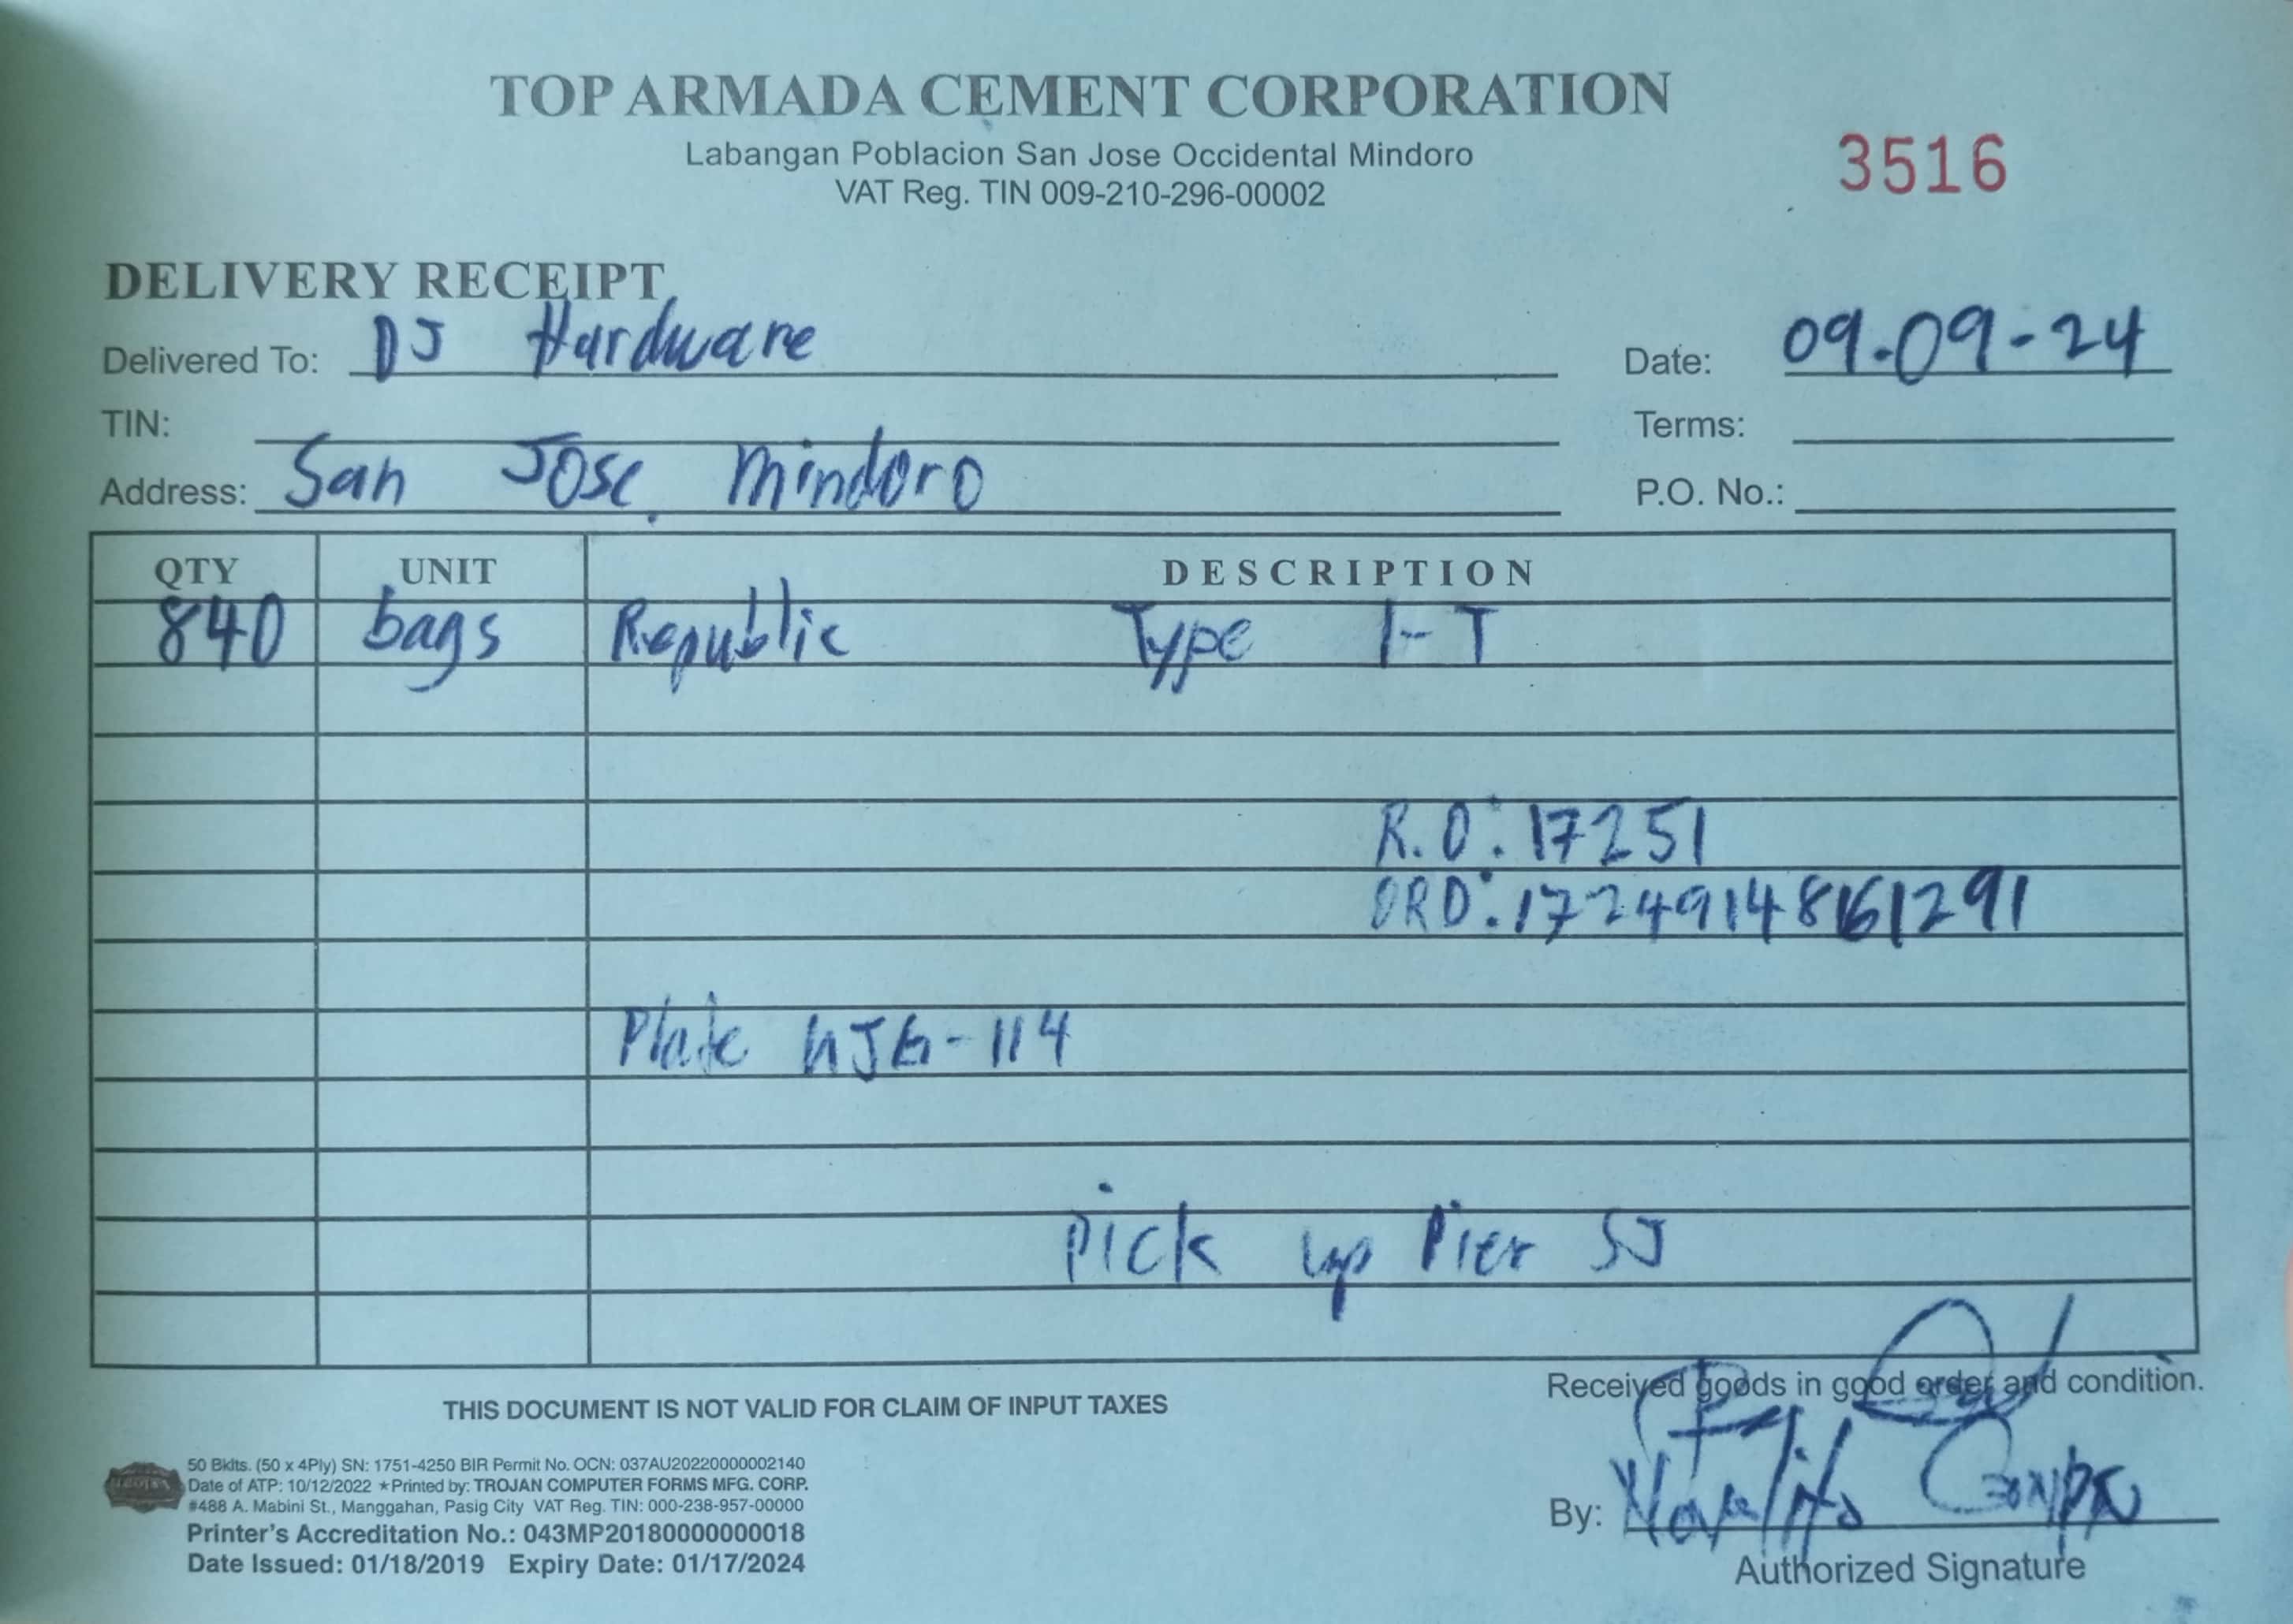 TOP ARMADA CEMENT CORPORATION
Labangan Poblacion San Jose Occidental Mindoro
VAT Reg. TIN 009-210-296-00002
3516
DELIVERY RECEIPT
Delivered To: DJ Hardware
Date: 09-09-24
TIN:
Terms:
Address: San Jose Mindoro
P.O. No.:
QTY UNIT DESCRIPTION
840 bags Republic Type 1-T
R.O: 17251
ORD: 1724914816 1291
Plate
Pick up Pier SJ
THIS DOCUMENT IS NOT VALID FOR CLAIM OF INPUT TAXES
Received goods in good order and condition.
50 Bklts. (50 x 4Ply) SN: 1751-4250 BIR Permit No. OCN: 037AU20220000002140
Date of ATP: 10/12/2022 ★Printed by: TROJAN COMPUTER FORMS MFG. CORP.
#488 A. Mabini St., Manggahan, Pasig City VAT Reg. TIN: 000-238-957-00000
Printer's Accreditation No.: 043MP20180000000018
Date Issued: 01/18/2019 Expiry Date: 01/17/2024
By:
Authorized Signature